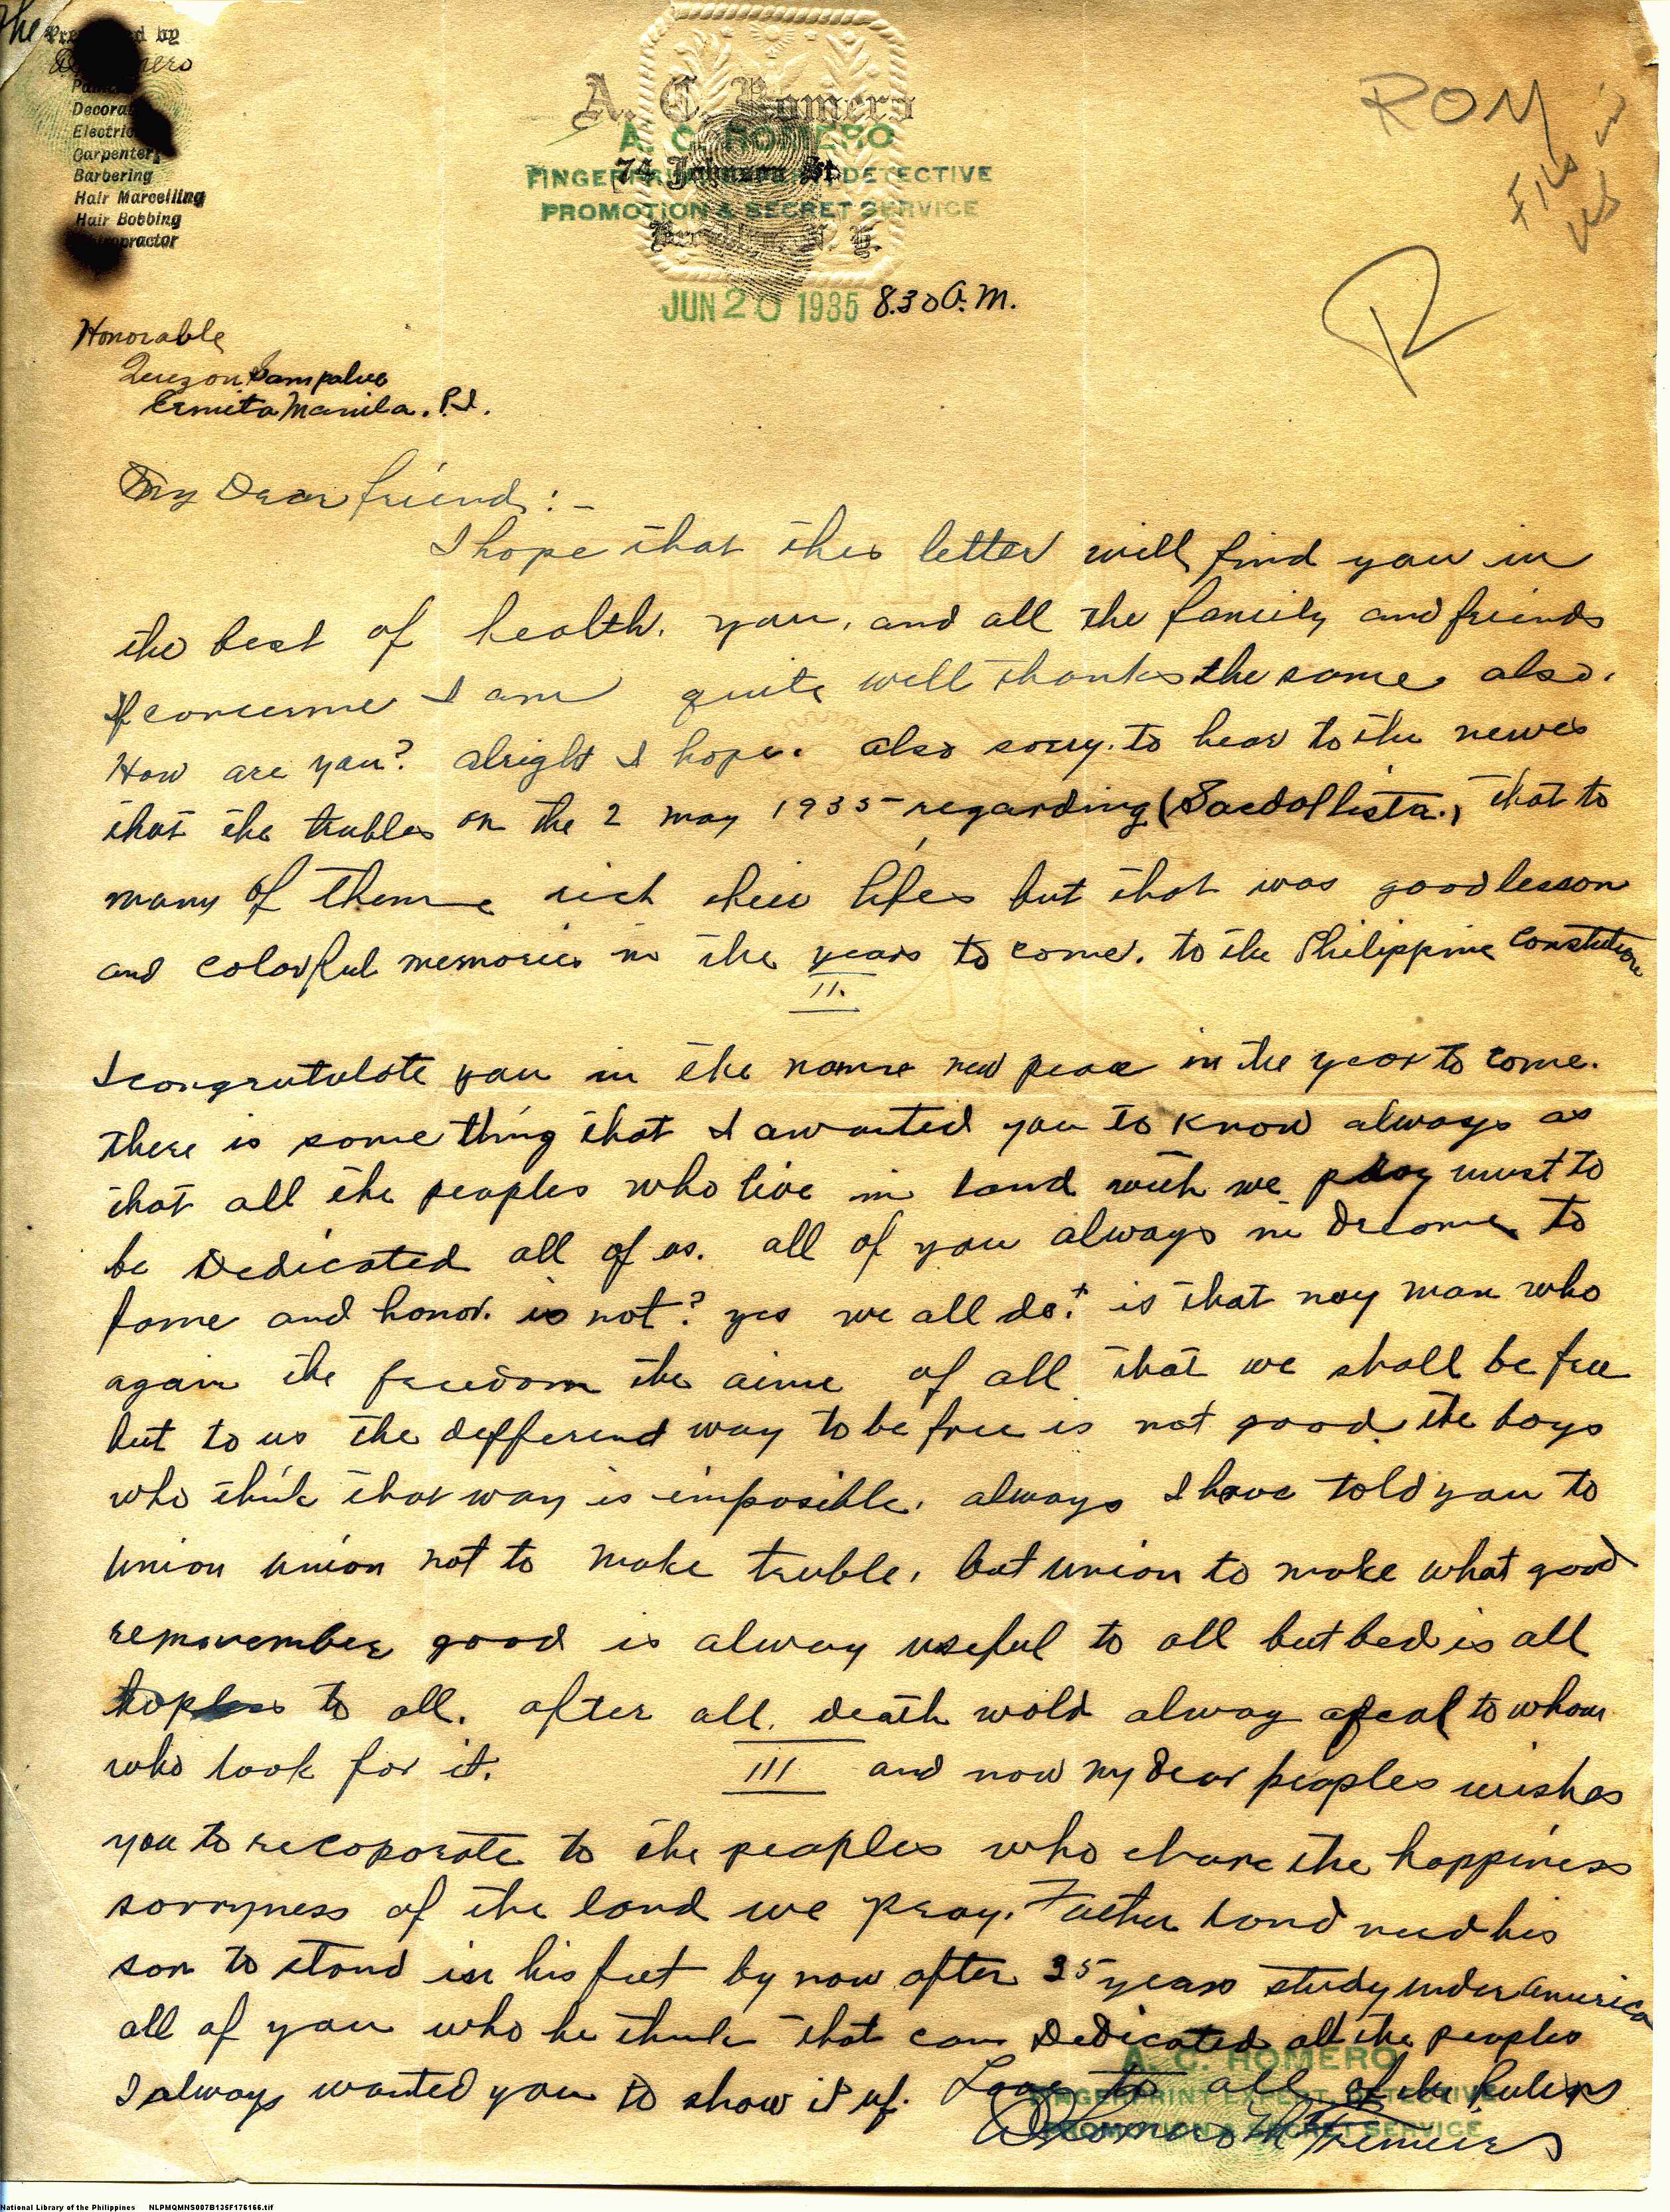 The
by
Decora
Electric
Carpenter
Barbering
Hair Marcelling
Hair Bobbing
A. C. Romero
A. C. ROMERO
74 Johnson St.
FINGERPRINT DETECTIVE
PROMOTION & SECRET SERVICE
Brooklyn, N. Y.
JUN 20 1935 8.30 A.M.
ROM
File in
R
Honorable
Quezon Sampaloc
Ermita Manila. P.I.
My Dear friend: -
I hope that this letter will find you in
the best of health. you, and all the family and friends
If concerme I am quite well thanks the same also.
How are you? alright I hope. also sorry. to hear to the newes
that the trubles on the 2 may 1935 regarding (Sacdallista.) that to
many of theme rich their lifes but that was good lesson
and colorful memories in the years to come. to the Philippine Constitution
II.
I congrutulate you in the name new peace in the year to come.
there is some thing that I awanted you to know always as
that all the peoples who live in land with we pray must to
be Dedicated all of us. all of you always in dreame to
fame and honor. is not? yes we all do. is that ney man who
again the freedom the aime of all that we shall be free
but to us the defferend way to be free is not good. the boys
who think that way is imposible. always I have told you to
union union not to make truble, but union to make what good
remmember good is alway useful to all but bed is all
hopless to all. after all. death wold alway apeal to whom
who look for it. III and now my dear peoples wishes
you to recoporate to the peoples who share the happiness
sorryness of the land we pray. Father land need his
son to stand in his feet by now after 35 years study under America
all of you who he think that can Dedicated all the peoples
I always wanted you to show it up. Love to all of the
A. C. ROMERO
FINGERPRINT EXPERT DETECTIVE
PROMOTION & SECRET SERVICE
National Library of the Philippines NLPMQMNS007B135F176166.tif